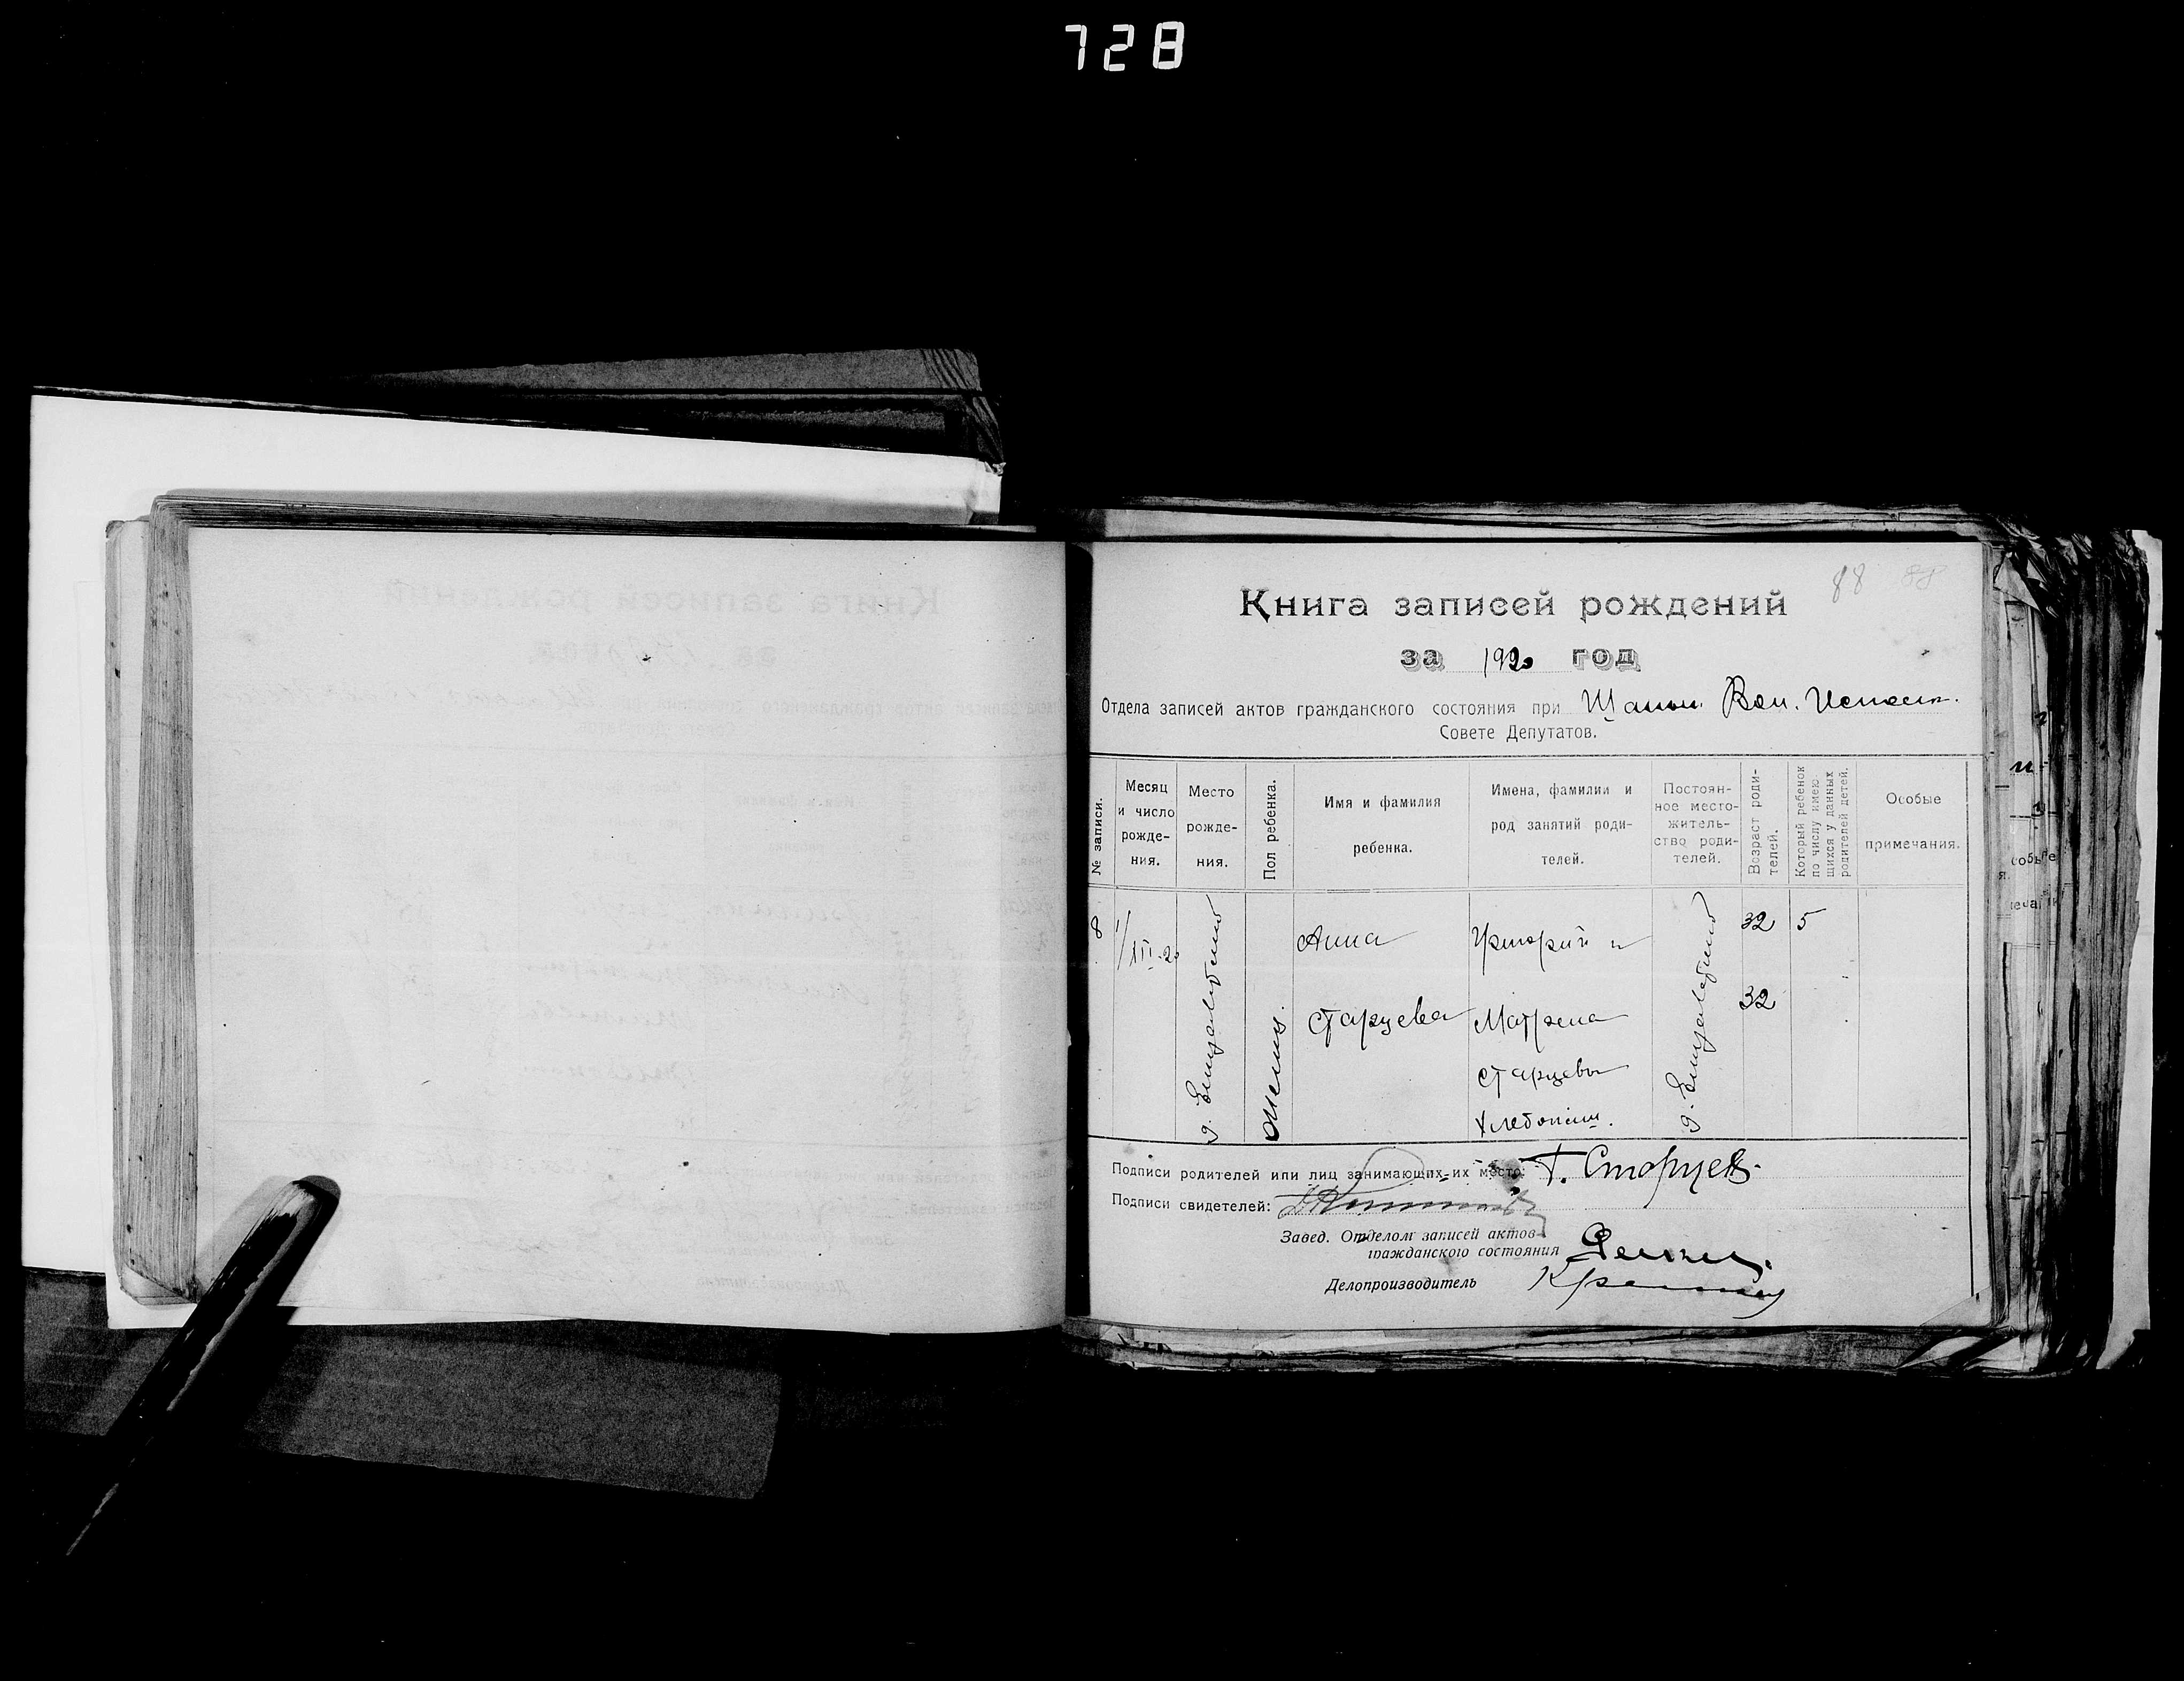 728
88 88
Книга записей рождений
за 1920 год
Отдела записей актов гражданского состояния при Вол. Исполк.
Совете Депутатов.
№ записи.
Месяц и число рожде- ния.
Место рожде- ния.
Пол ребенка.
Имя и фамилия ребенка.
Имена, фамилии и род занятий роди- телей.
Постоян- ное место- житель- ство роди- телей.
Возраст роди- телей.
Который ребенок по числу имею- щихся у данных родителей детей.
Особые примечания.
8
1/XII-20
женск.
Анна
Старцева
Григорий и
Матрена
Старцевы
хлебопаш.
32
32
5
Подписи родителей или лиц занимающих их место: Г. Старцев
Подписи свидетелей:
Завед. Отделом записей актов
гражданского состояния
Делопроизводитель